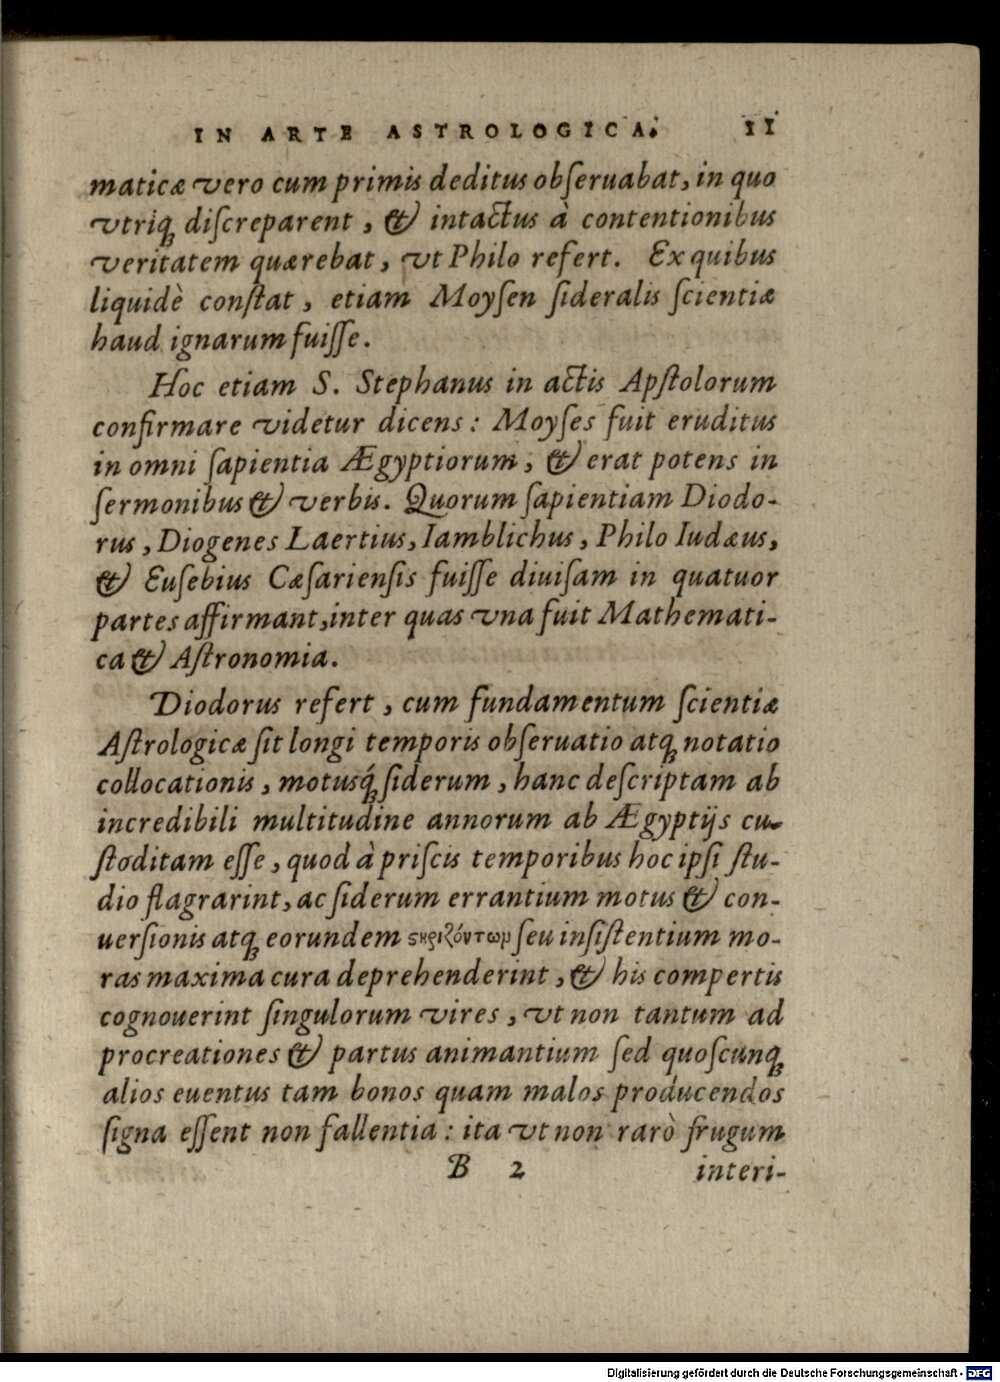 IN ARTE ASTROLOGICA. 11
maticæ vero cum primis deditus obſeruabat, in quo
vtriq́ue diſcreparent, & intactus à contentionibus
veritatem quærebat, vt Philo refert. Ex quibus
liquidè conſtat, etiam Moyſen ſideralis ſcientiæ
haud ignarum fuiſſe.
Hoc etiam S. Stephanus in actis Apſtolorum
confirmare videtur dicens: Moyſes fuit eruditus
in omni ſapientia Ægyptiorum, & erat potens in
ſermonibus & verbis. Quorum ſapientiam Diodo-
rus, Diogenes Laertius, Iamblichus, Philo Iudæus,
& Euſebius Cæſarienſis fuiſſe diuiſam in quatuor
partes affirmant, inter quas vna fuit Mathemati-
ca & Aſtronomia.
Diodorus refert, cum fundamentum ſcientiæ
Aſtrologicæ ſit longi temporis obſeruatio atq; notatio
collocationis, motusq́; ſiderum, hanc deſcriptam ab
incredibili multitudine annorum ab Ægyptijs cu-
ſtoditam eſſe, quod à priſcis temporibus hoc ipſi ſtu-
dio flagrarint, ac ſiderum errantium motus & con-
uerſionis atq; eorundem ϛηριζόντωμ ſeu inſiſtentium mo-
ras maxima cura deprehenderint, & his compertis
cognouerint ſingulorum vires, vt non tantum ad
procreationes & partus animantium ſed quoſcunq;
alios euentus tam bonos quam malos producendos
ſigna eſſent non fallentia: ita vt non rarò frugum
B 2 interi-
Digitalisierung gefördert durch die Deutsche Forschungsgemeinschaft - DFG